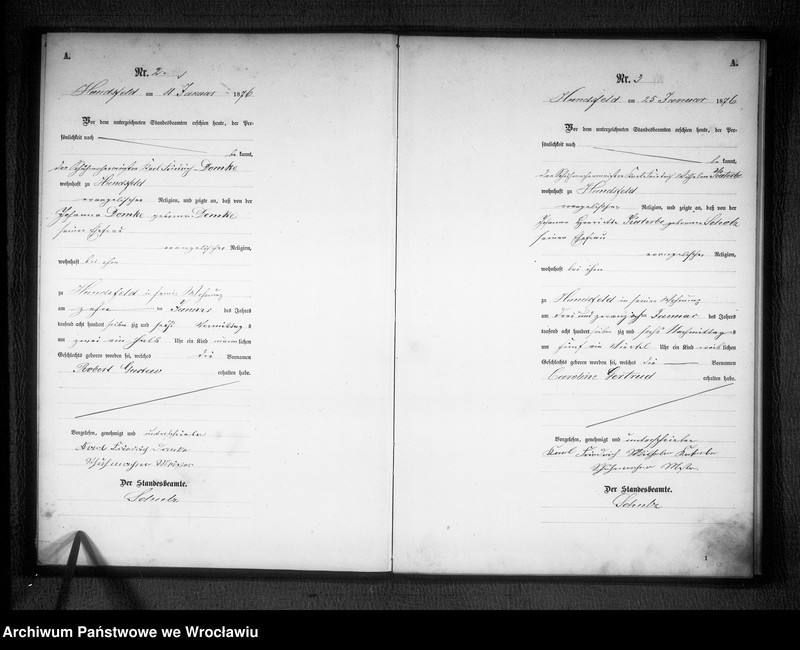 A.
Nr. 2
Hundsfeld am 11 Januar 1876
Vor dem unterzeichneten Standesbeamten erschien heute, der Per-
sönlichkeit nach
be kannt,
der Schuhmachermeister Karl Friedrich Domke
wohnhaft zu Hundsfeld
evangelischer Religion, und zeigte an, daß von der
Johanna Domke geborene Domke
seiner Ehefrau
evangelischer Religion,
wohnhaft bei ihm
zu Hundsfeld in seiner Wohnung
am zehn ten Januar des Jahres
tausend acht hundert sieben zig und sechs Vormittag s
um zwei ein halb Uhr ein Kind männ lichen
Geschlechts geboren worden sei, welches die Vornamen
Robert Gustav
erhalten habe.
Vorgelesen, genehmigt und unterschrieben
Karl Friedrich Domke
Schuhmacher Meister
Der Standesbeamte.
Scholz
A.
Nr. 3
Hundsfeld am 25 Januar 1876
Vor dem unterzeichneten Standesbeamten erschien heute, der Per-
sönlichkeit nach
be kannt,
der Schuhmachermeister Karl Friedrich Wilhelm
wohnhaft zu Hundsfeld
evangelischer Religion, und zeigte an, daß von der
Johanne Henriette geborene Scholz
seiner Ehefrau
evangelischer Religion,
wohnhaft bei ihm
zu Hundsfeld in seiner Wohnung
am drei und zwanzigsten Januar des Jahres
tausend acht hundert sieben zig und sechs Nachmittag s
um fünf ein Viertel Uhr ein Kind weib lichen
Geschlechts geboren worden sei, welches die Vornamen
Caroline Gertrud
erhalten habe.
Vorgelesen, genehmigt und unterschrieben
Karl Friedrich Wilhelm
Schuhmacher Mstr.
Der Standesbeamte.
Scholz
1
Archiwum Państwowe we Wrocławiu